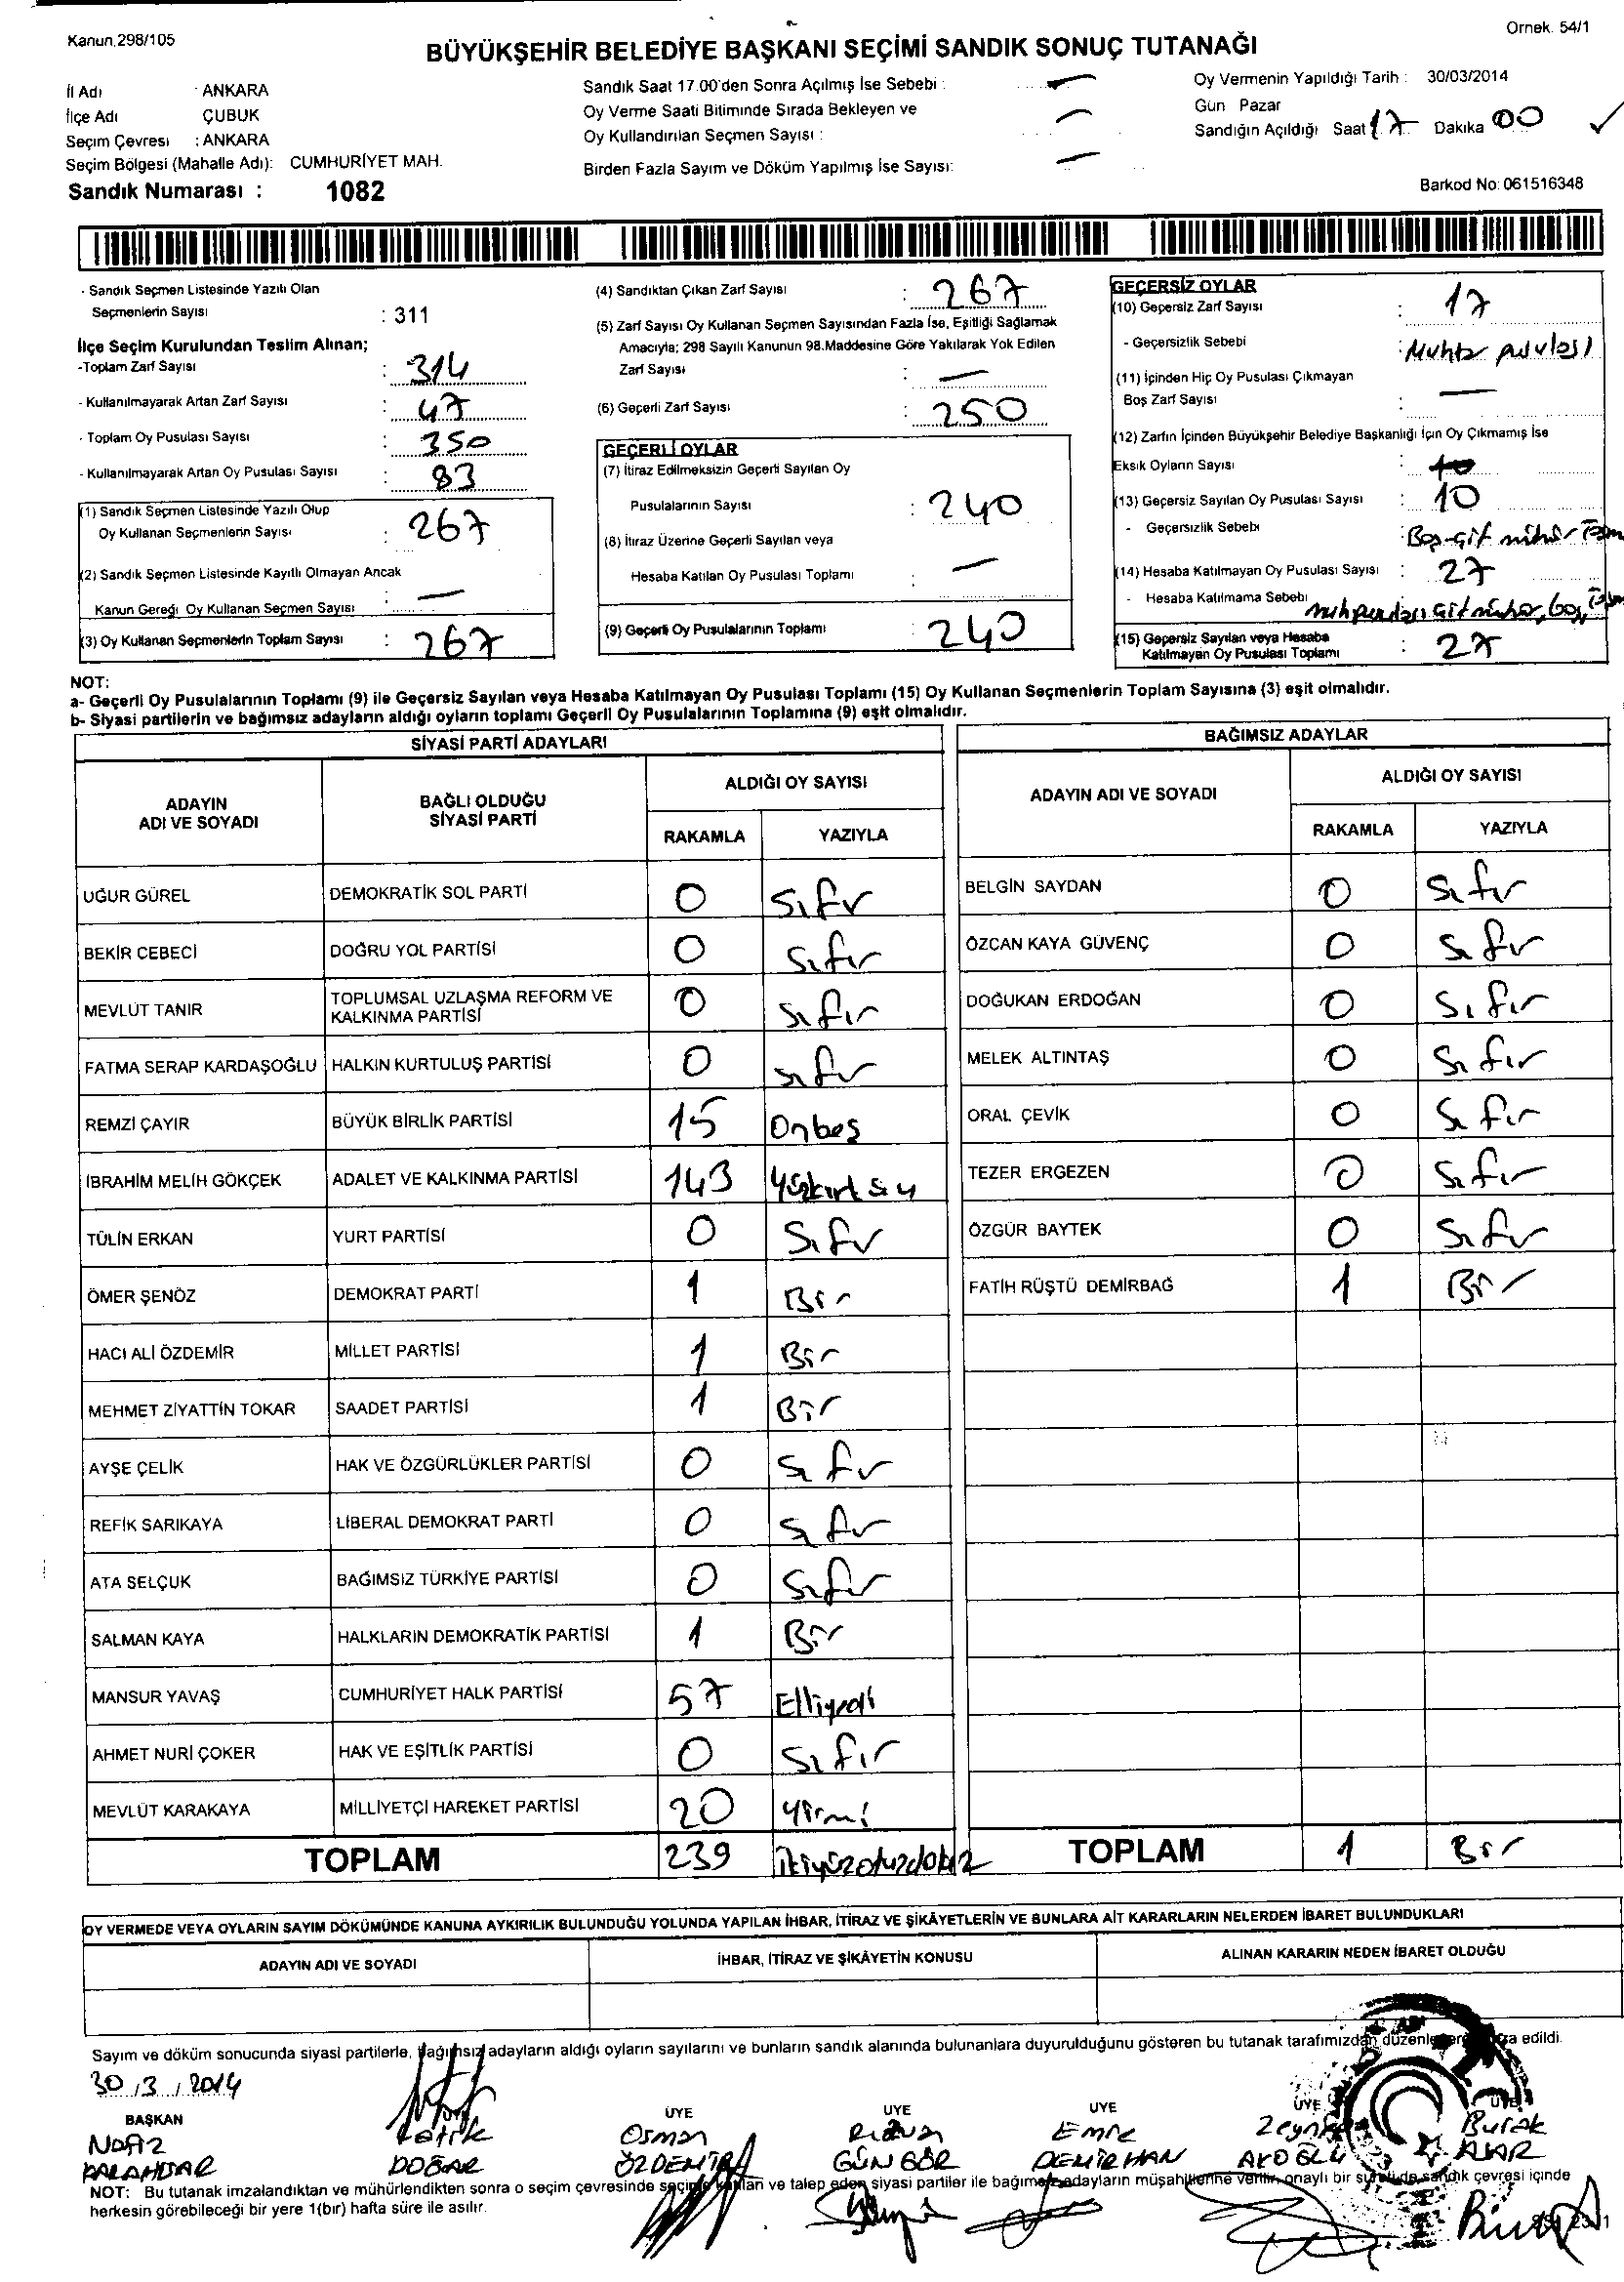 Kanun.298/105
Örnek. 54/1
BÜYÜKŞEHİR BELEDİYE BAŞKANI SEÇİMİ SANDIK SONUÇ TUTANAĞI
İl Adı : ANKARA
İlçe Adı ÇUBUK
Seçim Çevresi : ANKARA
Seçim Bölgesi (Mahalle Adı): CUMHURİYET MAH.
Sandık Numarası : 1082
Sandık Saat 17.00'den Sonra Açılmış İse Sebebi : —
Oy Verme Saati Bitiminde Sırada Bekleyen ve
Oy Kullandırılan Seçmen Sayısı : —
Birden Fazla Sayım ve Döküm Yapılmış İse Sayısı: —
Oy Vermenin Yapıldığı Tarih : 30/03/2014
Gün Pazar
Sandığın Açıldığı Saat 17 Dakika 00
Barkod No: 061516348
- Sandık Seçmen Listesinde Yazılı Olan
Seçmenlerin Sayısı : 311
İlçe Seçim Kurulundan Teslim Alınan;
-Toplam Zarf Sayısı : 314
- Kullanılmayarak Artan Zarf Sayısı : 47
- Toplam Oy Pusulası Sayısı : 350
- Kullanılmayarak Artan Oy Pusulası Sayısı : 83
(1) Sandık Seçmen Listesinde Yazılı Olup
Oy Kullanan Seçmenlerin Sayısı : 267
(2) Sandık Seçmen Listesinde Kayıtlı Olmayan Ancak
Kanun Gereği Oy Kullanan Seçmen Sayısı : —
(3) Oy Kullanan Seçmenlerin Toplam Sayısı : 267
(4) Sandıktan Çıkan Zarf Sayısı : 267
(5) Zarf Sayısı Oy Kullanan Seçmen Sayısından Fazla İse, Eşitliği Sağlamak
Amacıyla; 298 Sayılı Kanunun 98.Maddesine Göre Yakılarak Yok Edilen
Zarf Sayısı : —
(6) Geçerli Zarf Sayısı : 250
GEÇERLİ OYLAR
(7) İtiraz Edilmeksizin Geçerli Sayılan Oy
Pusulalarının Sayısı : 240
(8) İtiraz Üzerine Geçerli Sayılan veya
Hesaba Katılan Oy Pusulası Toplamı : —
(9) Geçerli Oy Pusulalarının Toplamı : 240
GEÇERSİZ OYLAR
(10) Geçersiz Zarf Sayısı : 17
- Geçersizlik Sebebi : Muhtar pusulası
(11) İçinden Hiç Oy Pusulası Çıkmayan
Boş Zarf Sayısı : —
(12) Zarfın İçinden Büyükşehir Belediye Başkanlığı İçin Oy Çıkmamış İse
Eksik Oyların Sayısı :
(13) Geçersiz Sayılan Oy Pusulası Sayısı : 10
- Geçersizlik Sebebi : Boş-çift mühür
(14) Hesaba Katılmayan Oy Pusulası Sayısı : 27
- Hesaba Katılmama Sebebi çift mühür, boş,
(15) Geçersiz Sayılan veya Hesaba
Katılmayan Oy Pusulası Toplamı : 27
NOT:
a- Geçerli Oy Pusulalarının Toplamı (9) ile Geçersiz Sayılan veya Hesaba Katılmayan Oy Pusulası Toplamı (15) Oy Kullanan Seçmenlerin Toplam Sayısına (3) eşit olmalıdır.
b- Siyasi partilerin ve bağımsız adayların aldığı oyların toplamı Geçerli Oy Pusulalarının Toplamına (9) eşit olmalıdır.
SİYASİ PARTİ ADAYLARI
ADAYIN ADI VE SOYADI BAĞLI OLDUĞU SİYASİ PARTİ ALDIĞI OY SAYISI
RAKAMLA YAZIYLA
UĞUR GÜREL DEMOKRATİK SOL PARTİ 0 Sıfır
BEKİR CEBECİ DOĞRU YOL PARTİSİ 0 Sıfır
MEVLÜT TANIR TOPLUMSAL UZLAŞMA REFORM VE KALKINMA PARTİSİ 0 Sıfır
FATMA SERAP KARDAŞOĞLU HALKIN KURTULUŞ PARTİSİ 0 sıfır
REMZİ ÇAYIR BÜYÜK BİRLİK PARTİSİ 15 Onbeş
İBRAHİM MELİH GÖKÇEK ADALET VE KALKINMA PARTİSİ 143
TÜLİN ERKAN YURT PARTİSİ 0 Sıfır
ÖMER ŞENÖZ DEMOKRAT PARTİ 1 Bir
HACI ALİ ÖZDEMİR MİLLET PARTİSİ 1 Bir
MEHMET ZİYATTİN TOKAR SAADET PARTİSİ 1 Bir
AYŞE ÇELİK HAK VE ÖZGÜRLÜKLER PARTİSİ 0 Sıfır
REFİK SARIKAYA LİBERAL DEMOKRAT PARTİ 0 Sıfır
ATA SELÇUK BAĞIMSIZ TÜRKİYE PARTİSİ 0 Sıfır
SALMAN KAYA HALKLARIN DEMOKRATİK PARTİSİ 1 Bir
MANSUR YAVAŞ CUMHURİYET HALK PARTİSİ 57 Elliyedi
AHMET NURİ ÇOKER HAK VE EŞİTLİK PARTİSİ 0 Sıfır
MEVLÜT KARAKAYA MİLLİYETÇİ HAREKET PARTİSİ 20 Yirmi
TOPLAM 239 ikiyüzotuzdokuz
BAĞIMSIZ ADAYLAR
ADAYIN ADI VE SOYADI ALDIĞI OY SAYISI
RAKAMLA YAZIYLA
BELGİN SAYDAN 0 Sıfır
ÖZCAN KAYA GÜVENÇ 0 Sıfır
DOĞUKAN ERDOĞAN 0 Sıfır
MELEK ALTINTAŞ 0 Sıfır
ORAL ÇEVİK 0 Sıfır
TEZER ERGEZEN 0 Sıfır
ÖZGÜR BAYTEK 0 Sıfır
FATİH RÜŞTÜ DEMİRBAĞ 1 Bir
TOPLAM 1 Bir
OY VERMEDE VEYA OYLARIN SAYIM DÖKÜMÜNDE KANUNA AYKIRILIK BULUNDUĞU YOLUNDA YAPILAN İHBAR, İTİRAZ VE ŞİKÂYETLERİN VE BUNLARA AİT KARARLARIN NELERDEN İBARET BULUNDUKLARI
ADAYIN ADI VE SOYADI İHBAR, İTİRAZ VE ŞİKÂYETİN KONUSU ALINAN KARARIN NEDEN İBARET OLDUĞU
Sayım ve döküm sonucunda siyasi partilerle, bağımsız adayların aldığı oyların sayılarını ve bunların sandık alanında bulunanlara duyurulduğunu gösteren bu tutanak tarafımızdan düzenlenerek imza edildi.
30/3/2014
BAŞKAN ÜYE ÜYE ÜYE ÜYE ÜYE
Nafiz Osman Rıdvan Emre Zeynep Burak
DOĞAR ÖZDEMİR GÜNGÖR DEMİRHAN
NOT: Bu tutanak imzalandıktan ve mühürlendikten sonra o seçim çevresinde seçime katılan ve talep eden siyasi partiler ile bağımsız adayların müşahitlerine verilir, onaylı bir sureti de sandık çevresi içinde
herkesin görebileceği bir yere 1(bir) hafta süre ile asılır.